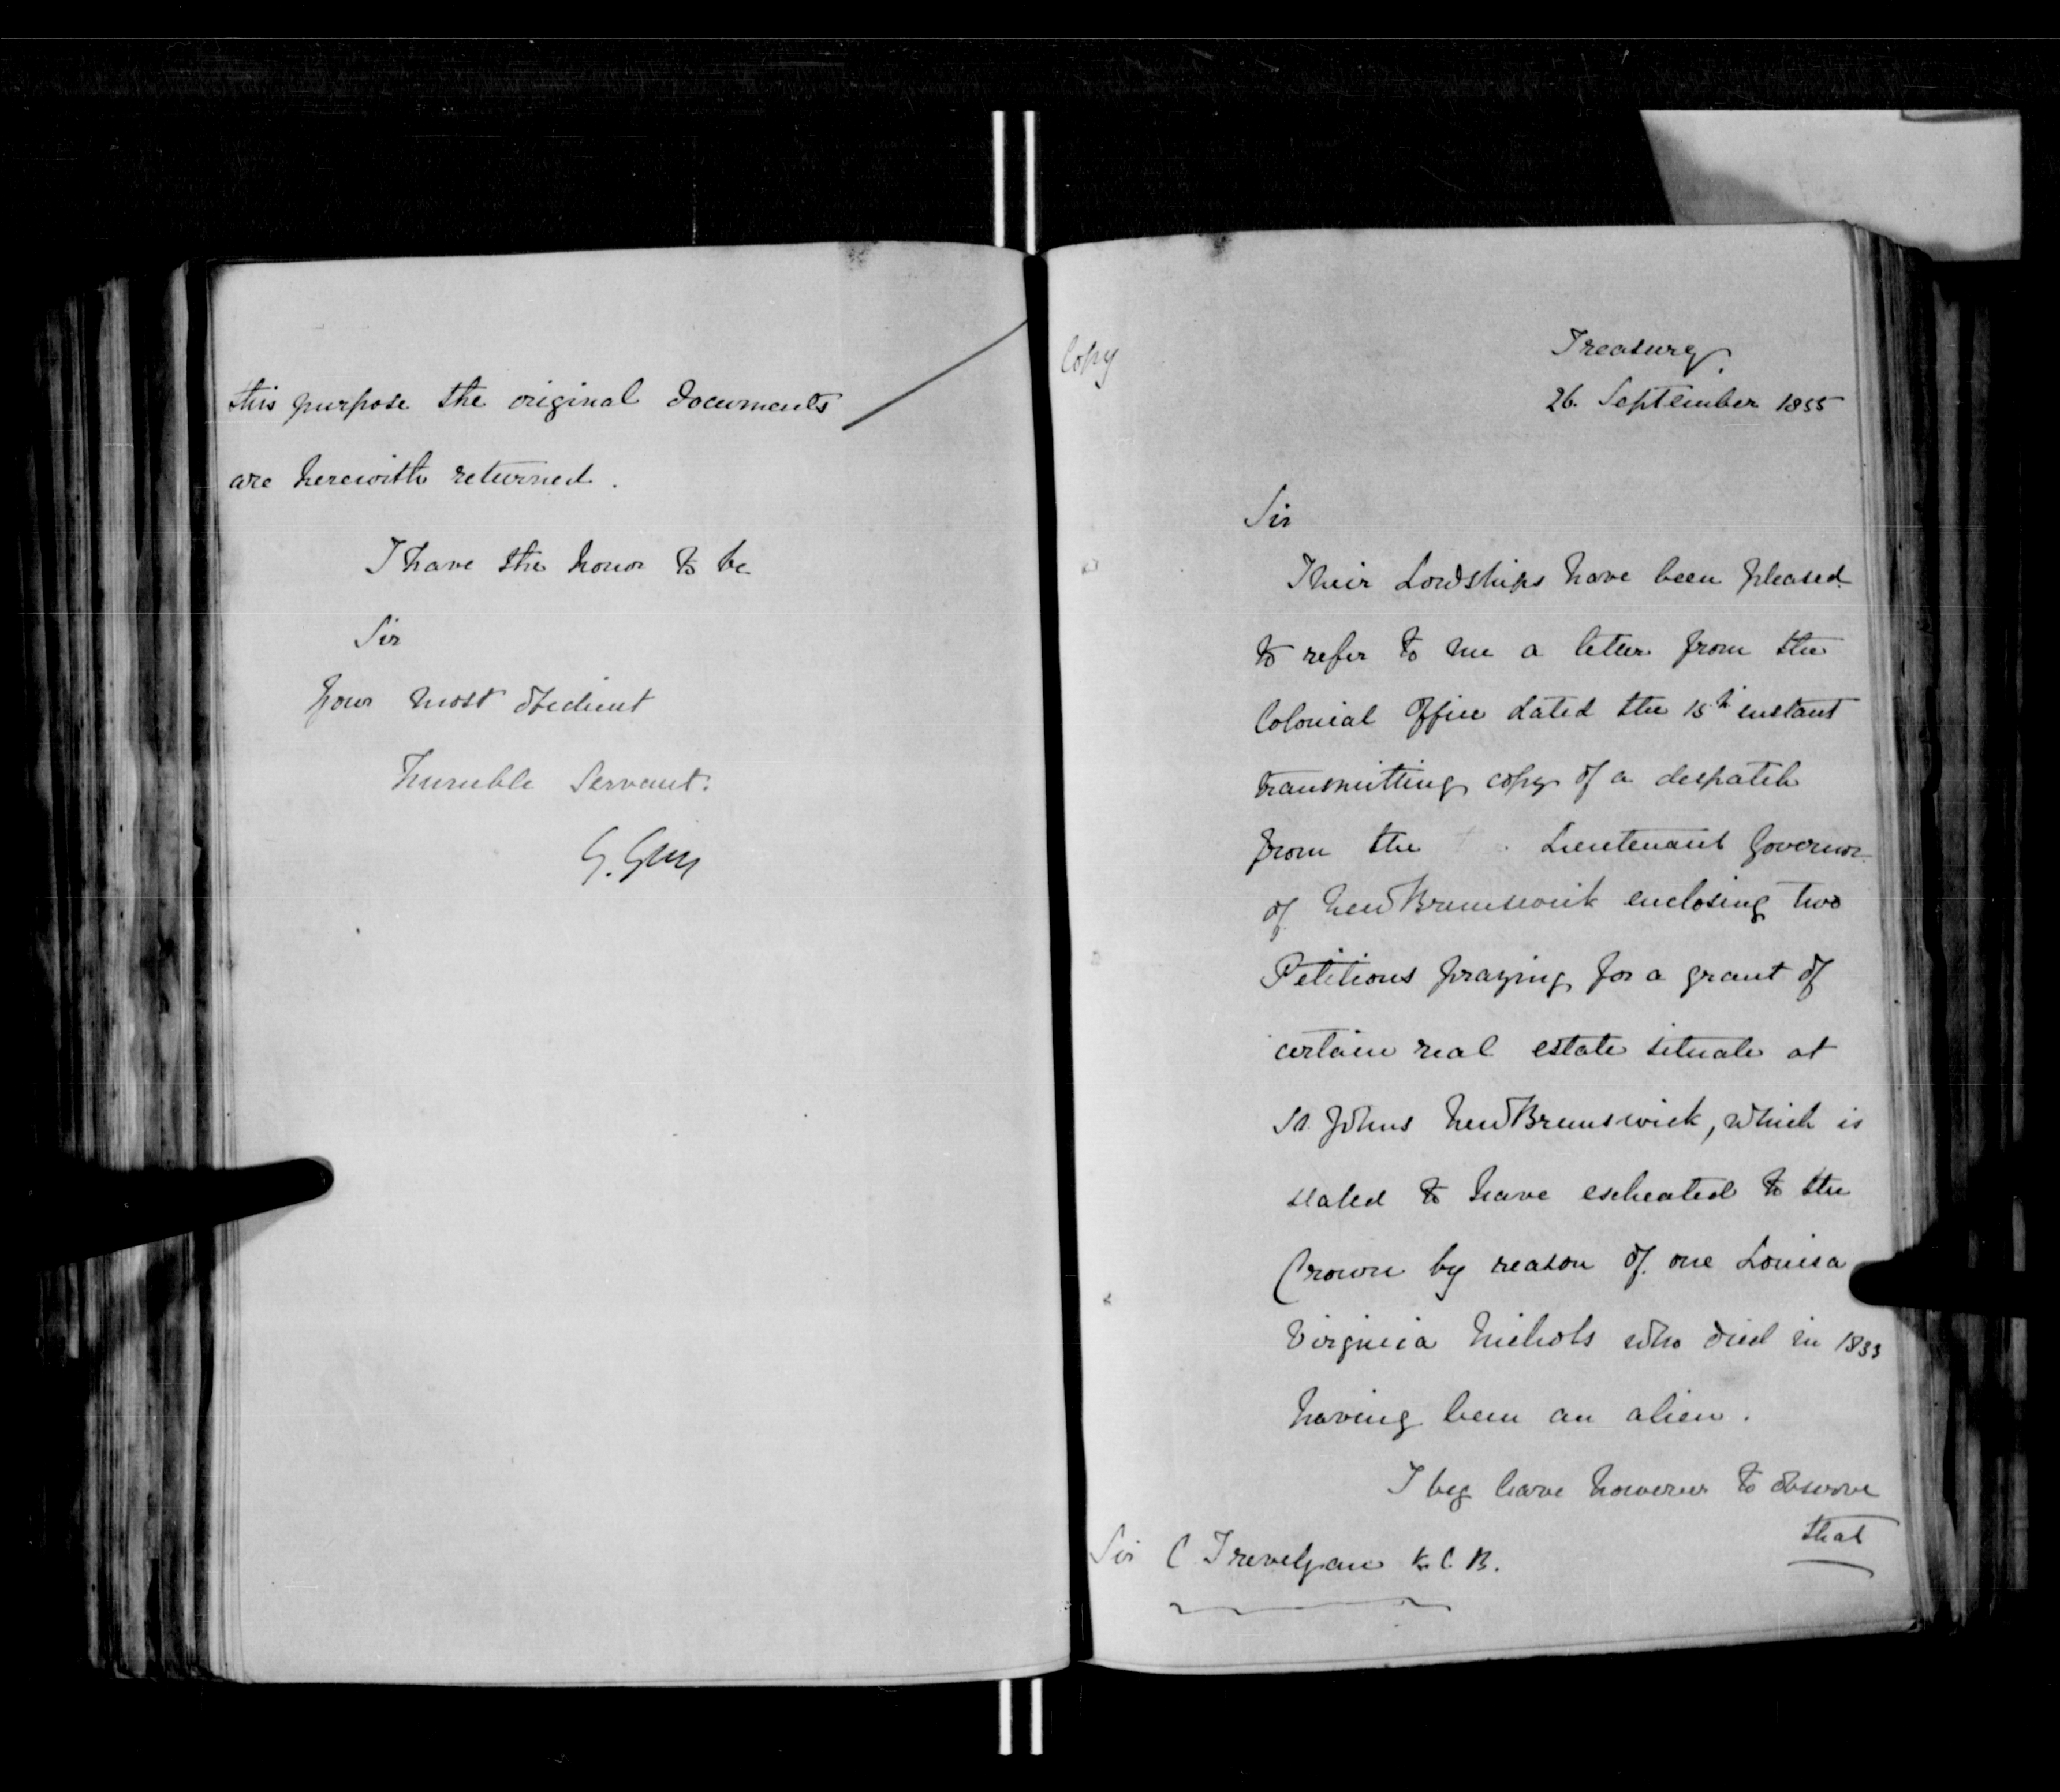 this purpose the original documents
are herewith returned.
I have the honor to be
Sir
Your most obedient
humble Servant.
G. Grey
Copy
Treasury
26. September 1855
Sir
Their Lordships have been pleased
to refer to me a letter from the
Colonial Office dated the 15th instant
transmitting copy of a despatch
from the Lieutenant Governor
of New Brunswick enclosing two
Petitions praying for a grant of
certain real estate situate at
St. Johns New Brunswick, which is
stated to have escheated to the
Crown by reason of one Louisa
Virginia Nichols who died in 1833
having been an alien.
I beg leave however to observe
that
Sir C Trevelyan K.C.B.